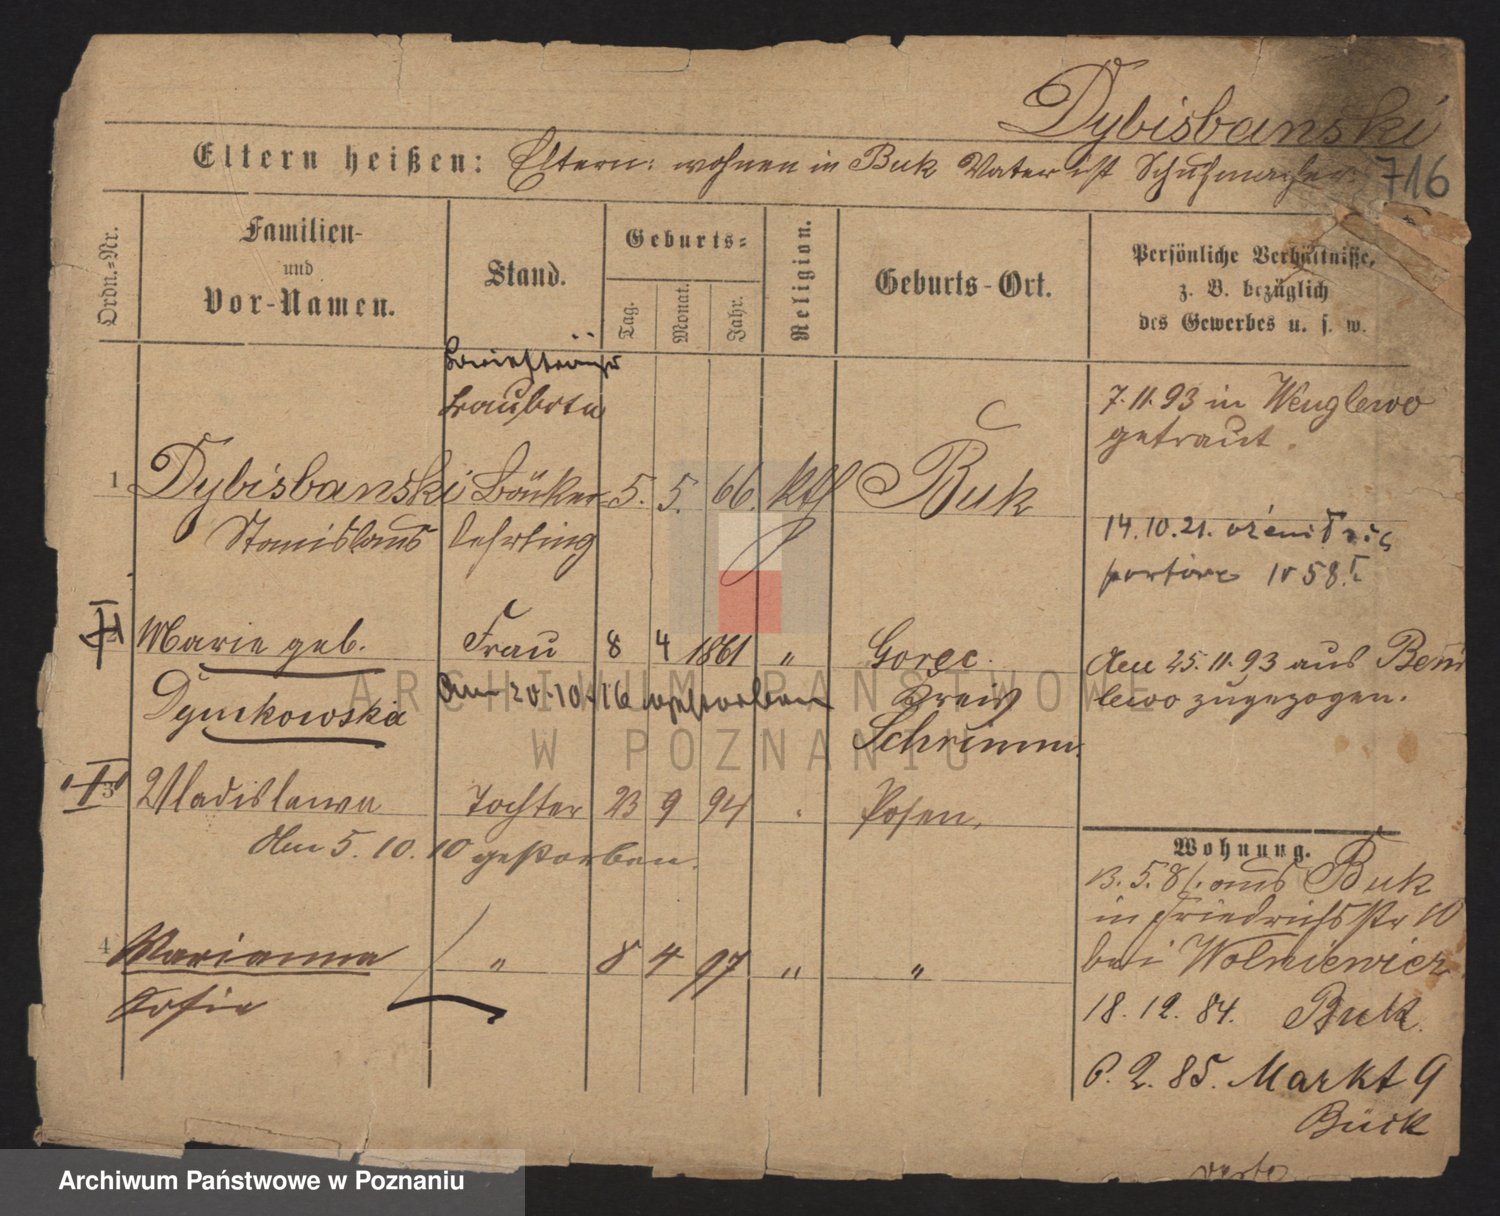 Dybisbanski
716
Eltern heißen: Eltern: wohnen in Buk Vater ist Schuhmacher.
Ordn.-Nr.
Familien- und Vor-Namen.
Stand.
Geburts-
Tag. Monat. Jahr.
Religion.
Geburts-Ort.
Persönliche Verhältnisse,
z. B. bezüglich
des Gewerbes u. s. w.
Briefträger
7.11.93 in Wenglewo
getraut.
1 Dybisbanski Bäcker 5. 5. 66. kth Buk
Stanislaus lehrling
14.10.21.
1058
II Marie geb. Frau 8 4 1861 " Gorec.
Dymkowska
Kreis
Schrimm.
den 20.10.16 gestorben
den 25.11.93 aus
lewo zugezogen.
3 Wladislawa Tochter 23 9 94 Posen.
den 5.10.10 gestorben.
Wohnung.
13.5.81. aus Buk
in Friedrichsstr 10
bei Wolniewicz
4 Marianna " 8 4 97 " "
Sofie
18.12.84. Buk.
6.2.85. Markt 9
Bück
verte
ARCHIWUM PAŃSTWOWE
W POZNANIU
Archiwum Państwowe w Poznaniu